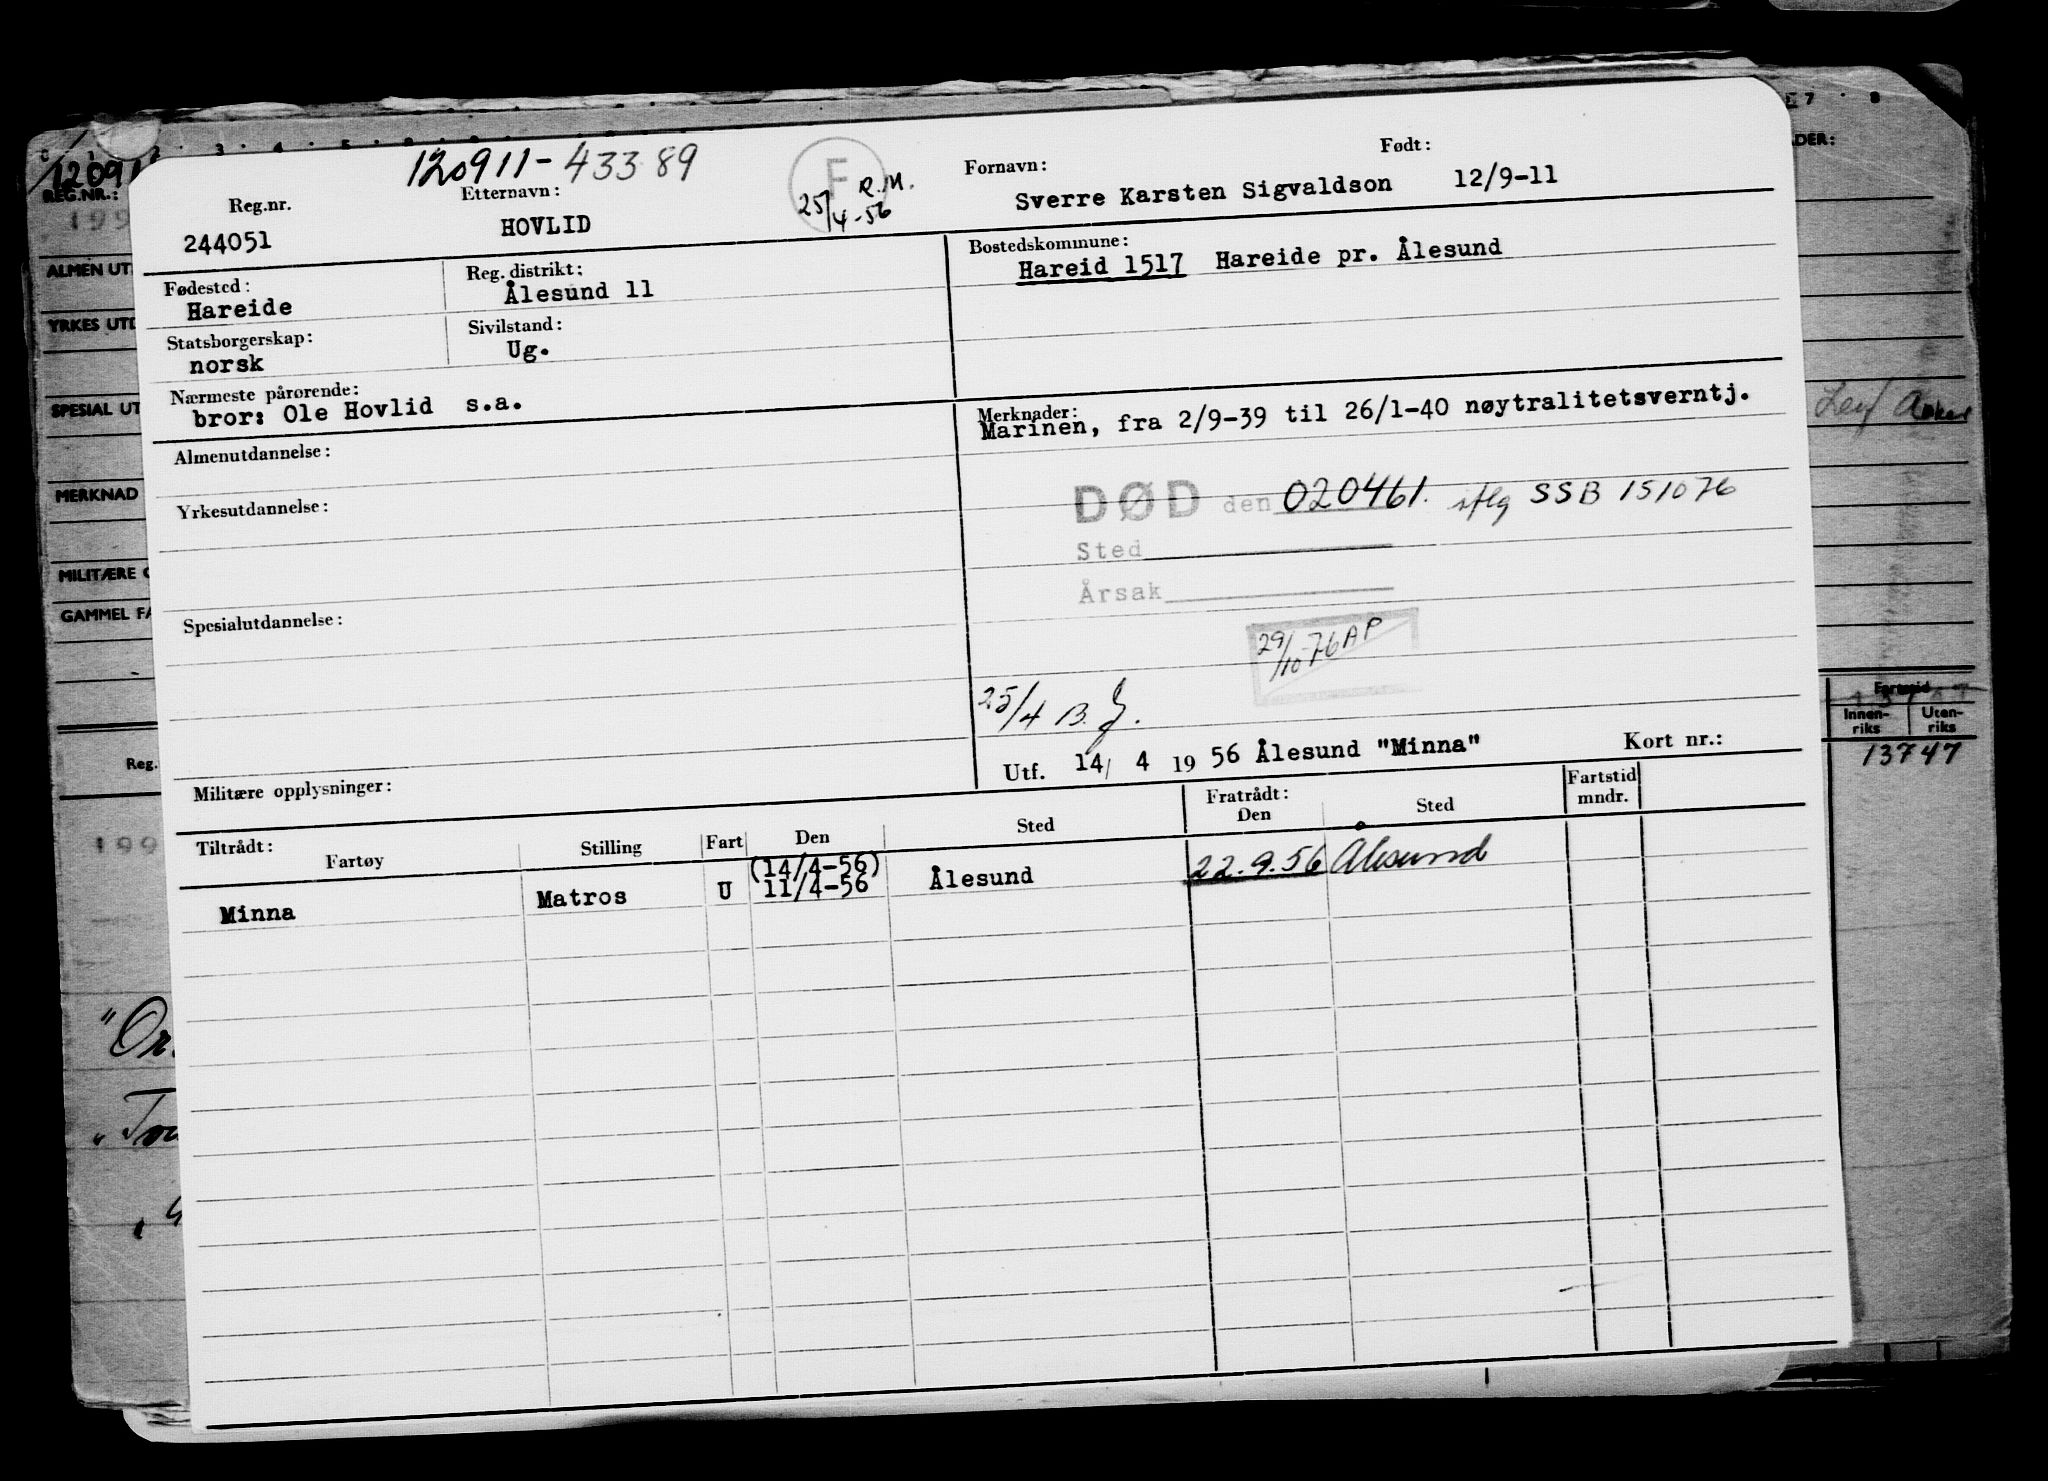 120911-43389
Reg.nr. Etternavn: Fornavn: Født:
F
25/4-56 R.M.
244051 HOVLID Sverre Karsten Sigvaldson 12/9-11
Fødested: Reg. distrikt: Bostedskommune:
Hareide Ålesund 11 Hareid 1517 Hareide pr. Ålesund
Statsborgerskap: Sivilstand:
norsk Ug.
Nærmeste pårørende: Merknader:
bror: Ole Hovlid s.a. Marinen, fra 2/9-39 til 26/1-40 nøytralitetsverntj.
Almenutdannelse:
DØD den 020461. iflg SSB 151076
Yrkesutdannelse:
Sted
Årsak
Spesialutdannelse:
29/10-76 AP
25/4 B.J.
Utf. 14/ 4 19 56 Ålesund "Minna" Kort nr.:
Militære opplysninger:
Tiltrådt: Fratrådt: Fartstid
Fartøy Stilling Fart Den Sted Den Sted mndr.
(14/4-56)
Minna Matros U 11/4-56 Ålesund 22.9.56 Ålesund
12091
REG.NR.:
199
ALMEN UT
YRKES UTD
SPESIAL UT
MERKNAD
MILITÆRE O
GAMMEL FA
Reg.
199
"Or
"To
DER:
Leif
Fartstid
Innen-riks Uten-riks
13747